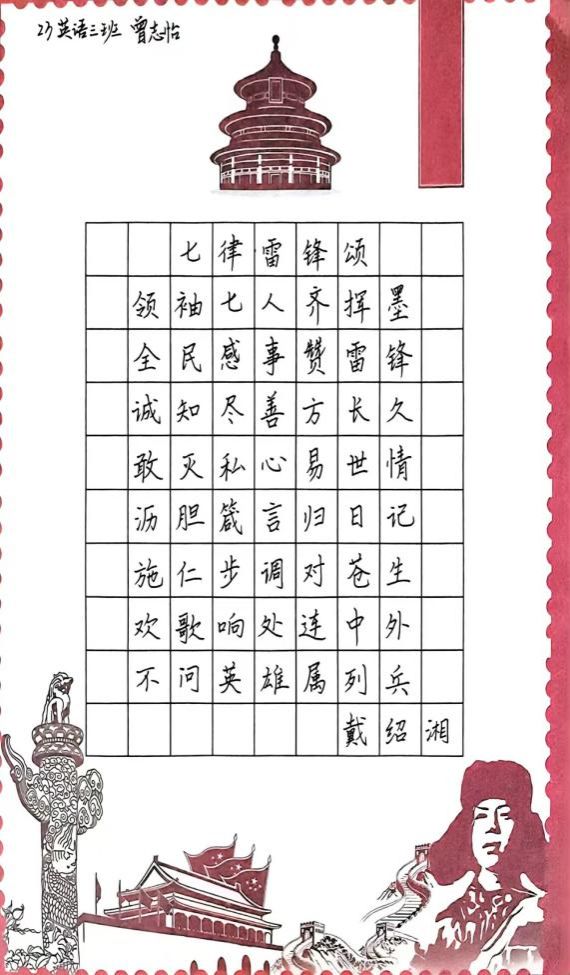 23英语三班 曾志怡
七律雷锋颂
领袖七人齐挥墨
全民感事赞雷锋
诚知尽善方长久
敢灭私心易世情
沥胆箴言归日记
施仁步调对苍生
欢歌响处连中外
不问英雄属列兵
戴绍湘